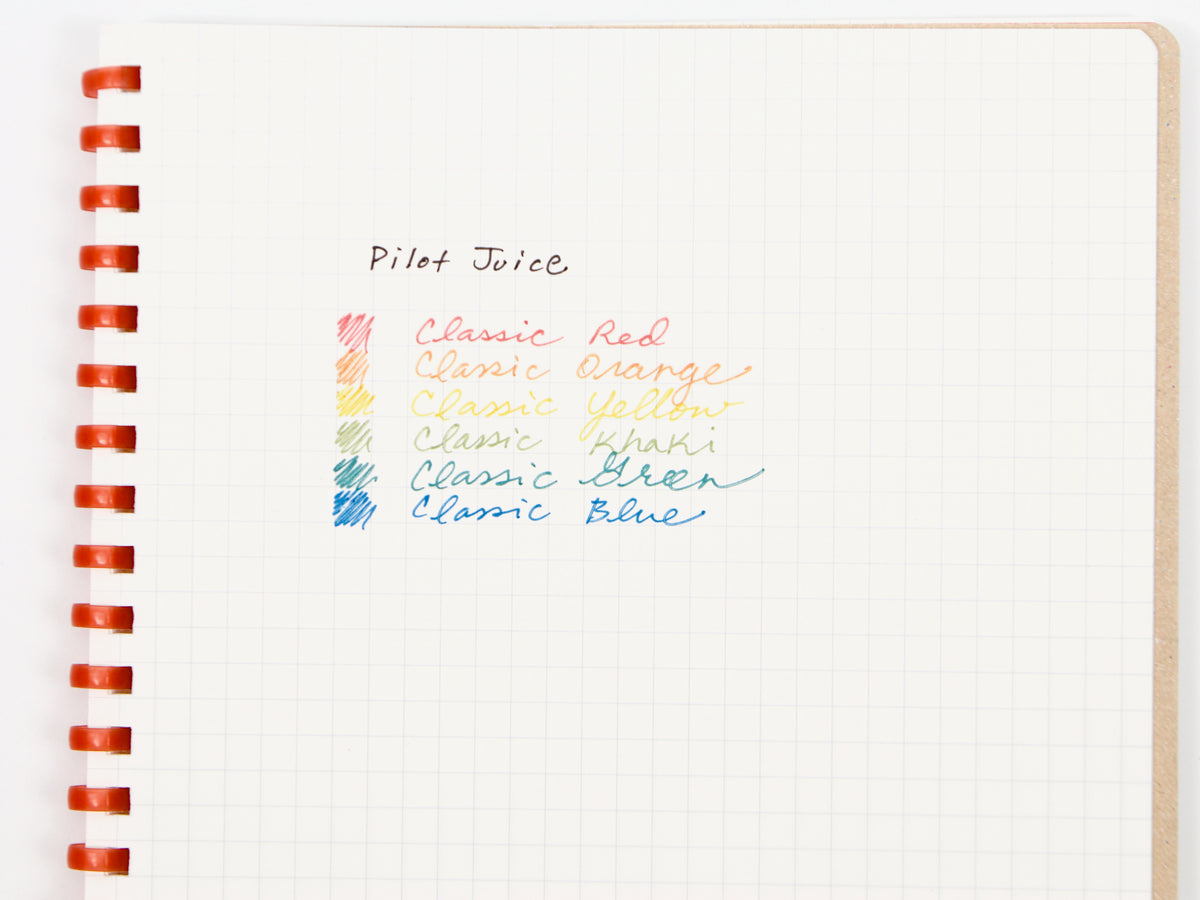 Pilot Juice
Classic Red
Classic Orange
Classic Yellow
Classic Khaki
Classic Green
Classic Blue